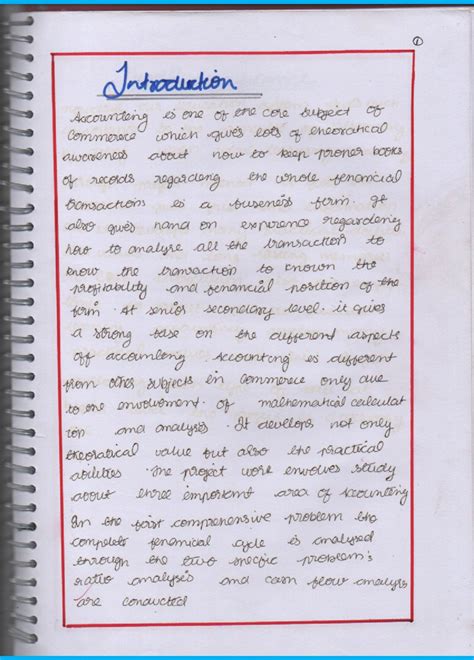 ①
Introduction
Accounting is one of the core subject of
commerce which gives lots of theoratical
awareness about how to keep proper books
of records regarding the whole financial
transactions is a buseness form. It
also gives hand on experience regardeing
how to analyse all the transaction to
know the transaction to known the
profitability and financial position of the
form. At senior secondary level. it gives
a strong base on the different aspects
off accounting Accounting is different
from other subjects in commerce only due
to the involvment of mathematical calculat
ion and analysis. It develops not only
theoratical value but also the practical
abilities. The project work envolves study
about three important area of Accounting
In the first comprehensive problem the
complete financial cycle is analysed
through the two specific problem's
ratio analysis and cash flow analysis
are conducted